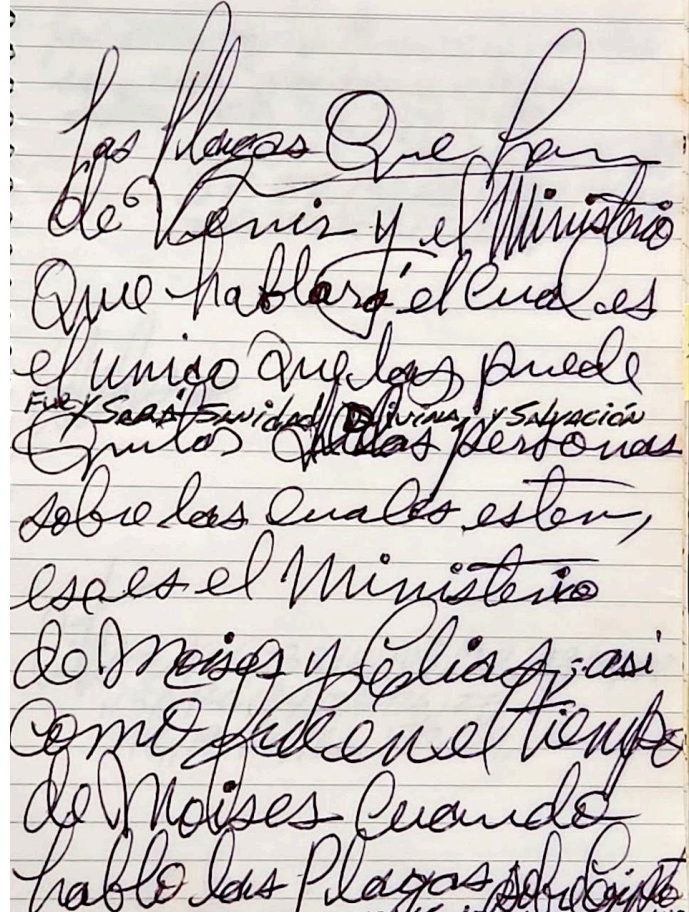 Las Plagas Que han
de Venir y el Ministerio
Que hablará el Cual es
el unico Que las puede
Fue y Será Sanidad Divina; y Salvación
Quitar de las personas
sobre las Cuales esten,
ese es el Ministerio
de Moises y Elias; asi
Como fue en el tiempo
de Moises Cuando
hablo las Plagas sobre Egipto